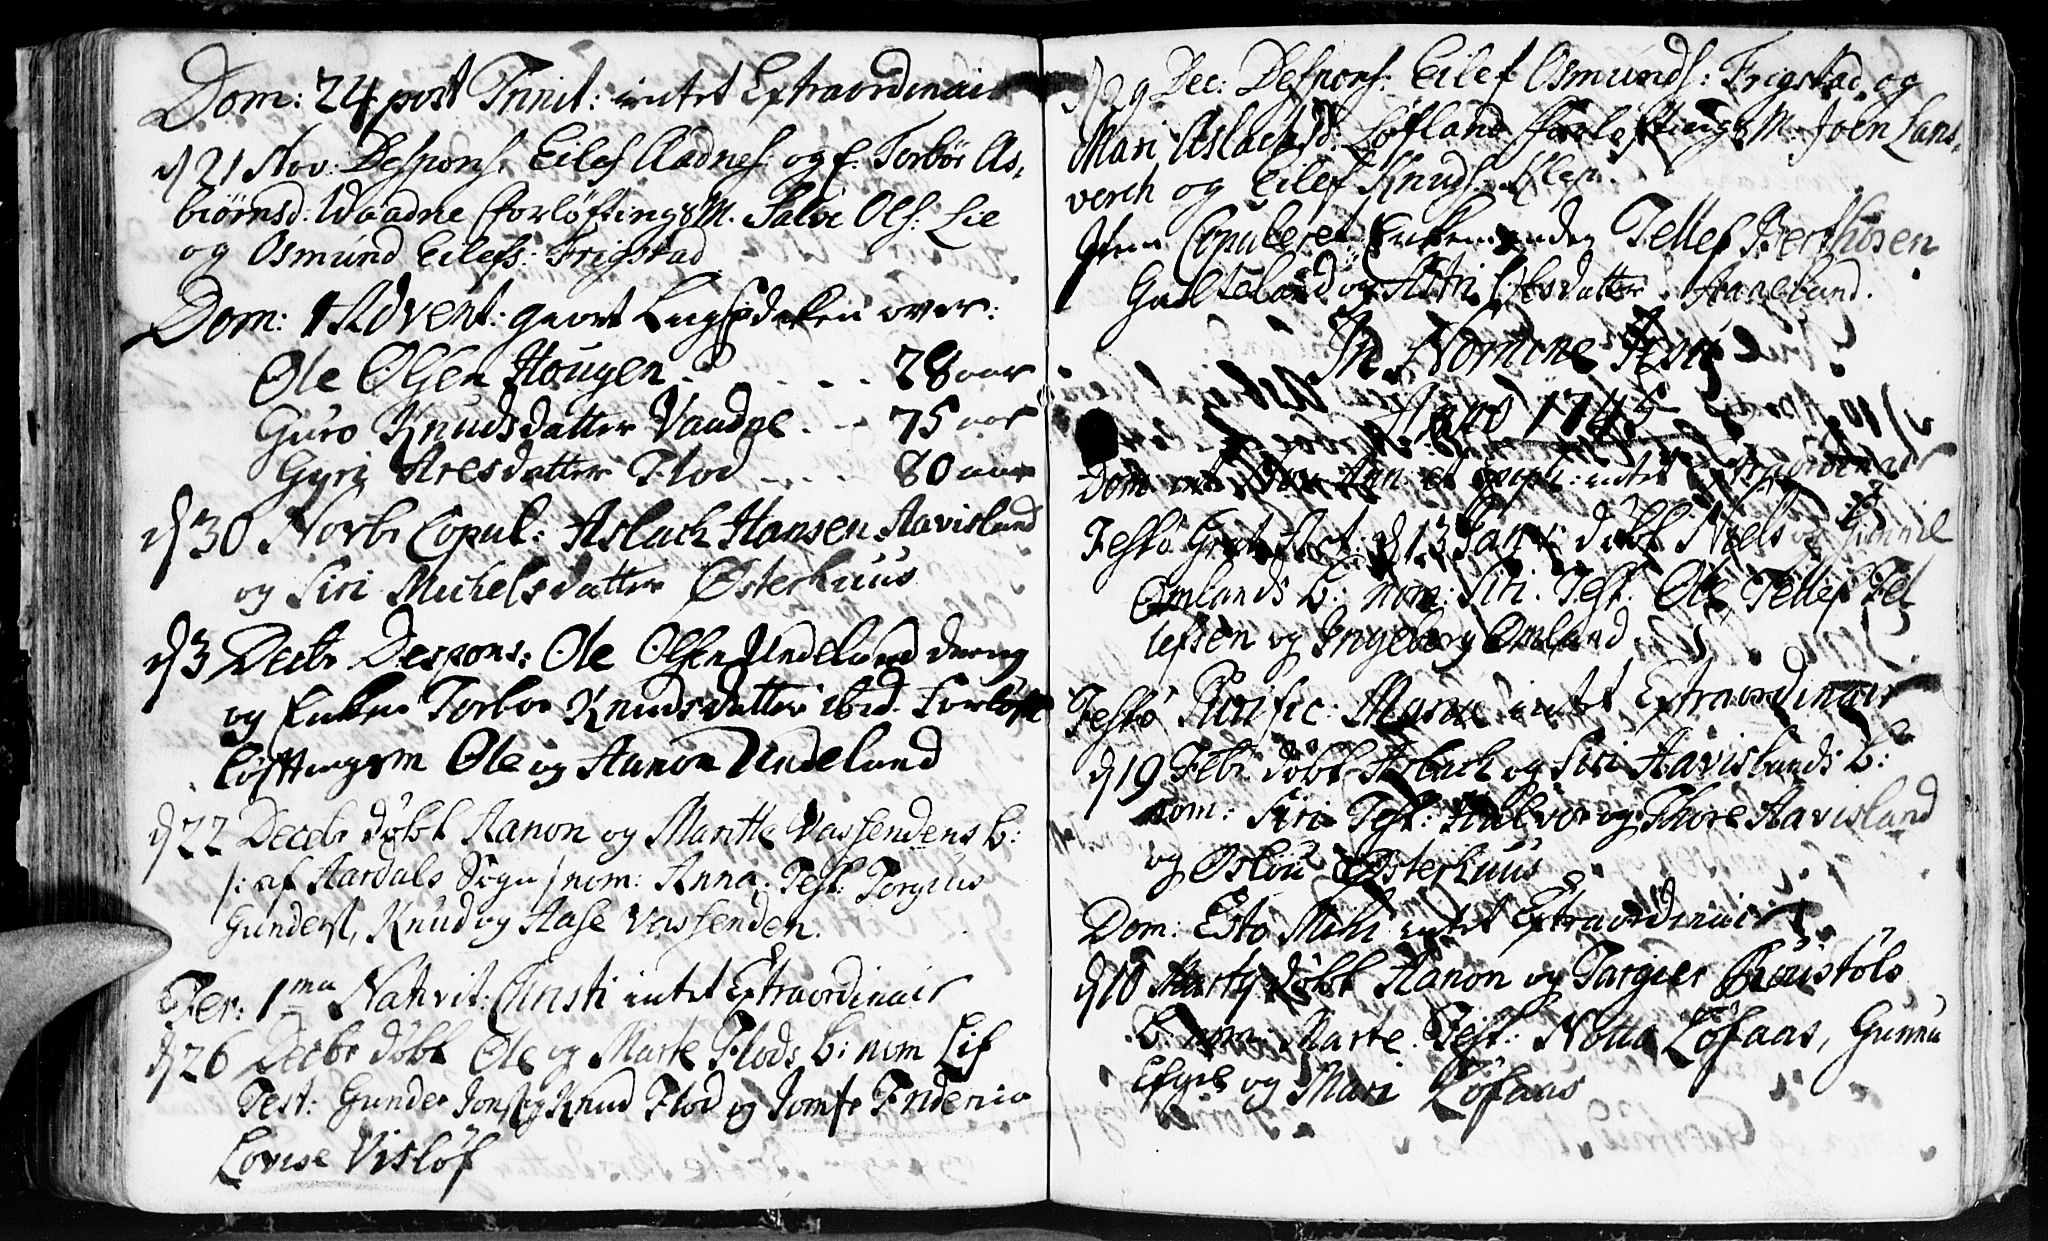 Dom: 24 post Trinit: intet Extraordinair
d 21 Nov: Despons: Eilef Aadnes: og f. Torbor As-
biørnsd: Waadne Forløftings M. Salve Ols: Lie
og Osmund Eilefs: Frigstad
Dom: 1 Advent: giort over:
Ole Olsen Hougen . . . . 28 aar
Guro Knudsdatter Vaadne . . . 75 aar
Gyri Aresdatter Flod . . . . 80 aar
d 30 Novbr Copul: Aslach Hansen Aavisland
og Siri Michelsdatter Østerhuus
d 3 Decbr Despons: Ole Olsen Undeland
og Enken Torbor Knudsdatter ibid. Forløft
løfftingsm Ole og Aanon Undeland
d 22 Decebr døbt Aanon og Maritte Vassendens b:
/: af Aardals Sogn / nom: Anna. Test: Torgius
Gunders, Knud og Aase Vassenden.
Fer: 1ma Nativit: Christi intet Extraordinair
d 26 Decbr døbt Ole og Marte Flods b: nom Lif
Test: Gunder Jons og Knud Flod og Jomfr Frideric
Lovise Visløf
d 29 Dec: Despons: Eilef Osmunds: Frigstad og
Mari Aslachsd: Løfland Forløftings M. Joen Lans-
verch og Eilef Knuds:
Copuleret Enkemanden Tellef Berthosen
Gulteland og Astri datter Aaneland.
In Nomine Jesu
Anno 1745
Dom: int: Nov Ann: et Epiph: intet Extraordinair
Festo d 13 Janv: døbt Niels og Gunnil
Omlands b: nom: Siri. Test: Ole, Tellef Tel
lefsen og Ingeborg Omland
Festo Purific: Mariæ intet Extraordinair
d 19 Febr: døbt Aslach og Siri Aavislands b:
nom: Siri Test: Halvor og Thore Aavisland
og Oslou Østerhuus
Dom: Esto Mihi intet Extraordinair
d 10 Martij døbt Aanon og Targier Røistøls
b: nom: Marte. Test: Notto Løfaas, Gunnu
og Mari Løfaas